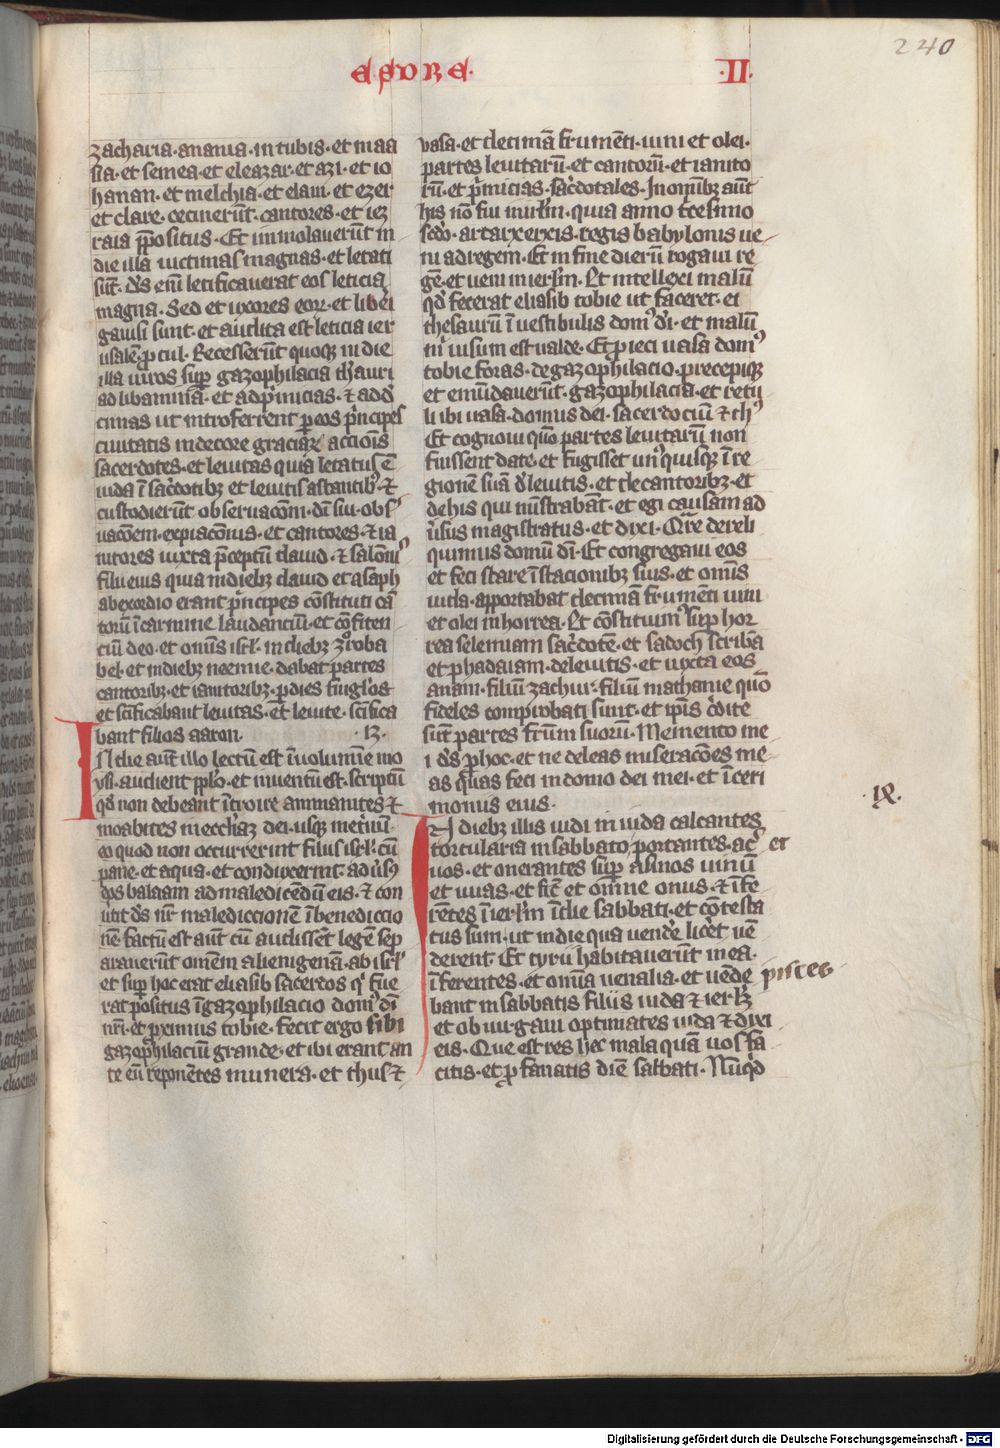 240
esdre
·II·
zacharia·anania·in tubis·et maa
sia·et semea·et eleazar·et azi·et io
hanan·et melchia·et elam·et ezer
et clare·cecinerūt·cantores·et iez
raia p̄positus·Et immolaverūt in
die illa uictimas magnas·et letati
sūt·ds̄ enī letificaverat eos leticia
magna·Sed et uxores eorꝝ·et liberi
gauisi sunt·et audita est leticia ier
usalē ꝓcul·Recesserūt quoqꝫ in die
illa uiros suꝑ gazophilacia thauri
ad libaminā·et ad pͥmicias·⁊ ad dͤ
cimas ut introferrent ꝑ eos pͥncipes
ciuitatis in decore graciāꝝ acciois̄
sacerdotes·et leuitas quia letatus ē
iuda ī sacͬdotibꝫ et leuitis astantibꝰ·⁊
custodierūt obseruacōm·dī sui·obs
uacōem·expiacōnis·et cantores·⁊ ia
nitores iuxta p̄ceptū dauid·⁊ salomōis
filii eius quia in diebꝫ dauid et asaph
ab exordio erant pͥncipes cōstituti cā
torū ī carmine laudanciū·et cōfiten
ciū deo·et omīs isrl̄·in diebꝫ zoroba
bel·et in diebꝫ neemie·dabāt partes
cantoribꝫ·et ianitoribꝫ·ꝑ dies singlos
et scīficabant leuitas·et leuite·scīfica
bant filios aaron· ·13·
IN die aut̄ illo lectū est ī uolumīe mo
ysi·audient ppl̄o·et inuentū est·scriptū
qd̄ non debeant ītroire ammanites ⁊
moabites in eccl̄iaꝫ dei·usqꝫ in et̄nū·
eo quod non occurrerint filiis isrl̄·cū
pane·et aqua·et conduxerint·ad uͥsꝰ
eos balaam ad maledicēdū eis·⁊ con
uͥtit ds̄ nr̄ malediccionē ī benediccio
nē·factū est aut̄ cū audissēt legē sep
arauerūt omēm alienigenā·ab isrl̄
et suꝑ hoc erat eliasib sacerdos qͥ fue
rat p̄positus ī gazophilacio domꝰ dī
nr̄i·et ꝓximus tobie·fecit ergo sibi
gazophilaciū grande·et ibi erant an
te eū reponētes munera·et thus ⁊
vasa·et decimā frumēti·uini et olei·
partes leuitarū·et cantorū·et ianito
rū·et pͥmicias·sacͬdotales·In omībꝫ aūt
his nō fui in ierl̄m·quia anno tͥcesimo
scd̄o·artarxerxis·regis babylonis ue
ni ad regem·Et in fine dierū rogaui re
gē·et ueni in ierl̄m·Et intellexi malū
qd̄ fecerat eliasib tobie ut faceret·ei
thesaurū ī uestibulis domꝰ dī·et malū
m̄ uisum est ualde·Et ꝓieci uasa domꝰ
tobie foras·de gazophilacio·precepiqꝫ
et emūdauerūt·gazophilacia·et retu
li ibi uasa·domus dei·sacerdociū ⁊ thꝰ
Et cognoui qūo partes leuitarū non
fuissent date·et fugisset unꝰquisqꝫ ī re
gionē suā dͤ leuitis·et de cantoribꝫ·et
de his qui mīstrabāt·et egi causam ad
uͥsus magistratus·et dixi·Qͣre dereli
quimus domū dī·Et congregaui eos
et feci stare ī stacionibꝫ suis·et omīs
iuda·apportabat decimā frumēti uini
et olei in horrea·Et cōstituimꝰ suꝑ hor
rea selemiam sacͬdotē·et sadoch scribā
et phadaiam·de leuitis·et iuxta eos
anam·filiū zachur·filiū mathanie qūo
fideles comprobati sunt·et ip̄is cͬdite
sūt partes frūm suorū·Memento me
i ds̄ ꝓ hoc·et ne deleas miseracōes me
as quas feci in domo dei mei·et ī ceri
monus eius·
·IX·
IN diebꝫ illis uidi in iuda calcantes
torcularia in sabbato portantes·acͤ et
uos·et onerantes suꝑ asinos uinū
et uuas·et fic̄ et omne onus·⁊ īfe
rētes ī ierl̄m ī die sabbati·et cōtesta
tus sum·ut in die qua uendͤe licͤet uē
derent·Et tyrii habitauerūt in ea·
īferentes·et omīa uenalia·et uēde pisces
bant in sabbatis filiis iuda ⁊ ierl̄ꝫ
et obiurgaui optimates iuda ⁊ dixi
eis·Que est res hec mala quā uos fa
citis·et ꝓfanatis diē sabbati·Nūqͥd
Digitalisierung gefördert durch die Deutsche Forschungsgemeinschaft - DFG